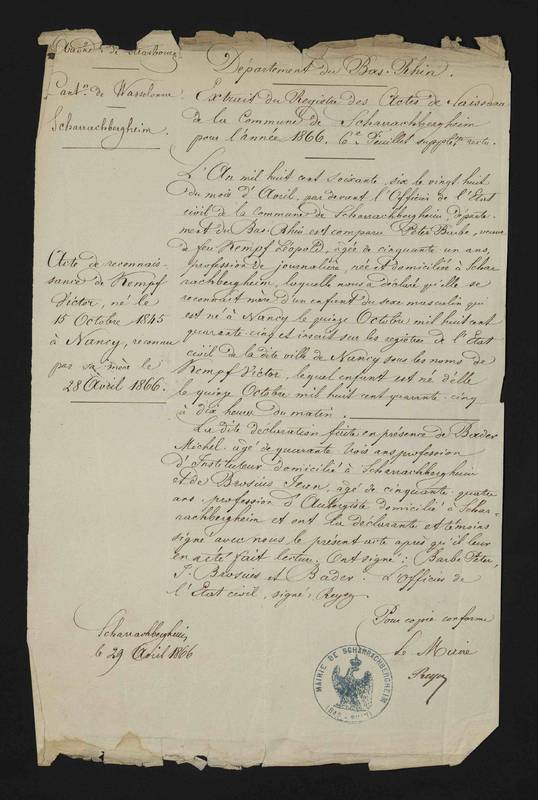 de Strasbourg
Cant.n de Wasselonne
Scharrachbergheim.
Département du Bas-Rhin.
Extrait du Registre des Actes de Naissance
de la Commune de Scharrachbergheim
pour l'année 1866. 6.e Feuillet supplétre recto.
Acte de reconnais-
sance de Kempf
Victor, né le
15 Octobre 1845
à Nancy, reconnu
par sa mère le
28 Avril 1866.
L'An mil huit cent soixante, six le vingt huit
du mois d'Avril, par devant l'Officier de l'Etat
civil de la Commune de Scharrachbergheim, départe-
ment du Bas-Rhin est comparu Peter Barbe, veuve
de feu Kempf Léopold, âgée de cinquante un ans,
profession de journalière, née et domiciliée à Schar-
rachbergheim, laquelle nous a déclaré qu'elle se
reconnait mère d'un enfant du sexe masculin qui
est né à Nancy le quinze Octobre mil huit cent
quarante cinq et inscrit sur les registres de l'Etat
civil de la dite ville de Nancy sous les noms de
Kempf Victor, lequel enfant est né d'elle
le quinze Octobre mil huit cent quarante cinq
à dix heures du matin.
La dite déclaration faite en présence de Bader
Michel âgé de quarante trois ans profession
d'Instituteur domicilié à Scharrachbergheim
et de Brosius Jean, âgé de cinquante quatre
ans, profession d'Aubergiste domicilié à Schar-
rachbergheim et ont la déclarante et témoins
signé avec nous le présent acte après qu'il leur
en a été fait lecture. Ont signé: Barbe Peter,
J. Brosius et Bader. L'Officier de
l'Etat civil, signé:
Scharrachbergheim,
le 29 Avril 1866
Pour copie conforme
Le Maire
MAIRIE DE SCHARRACHBERGHEIM
(BAS-RHIN)